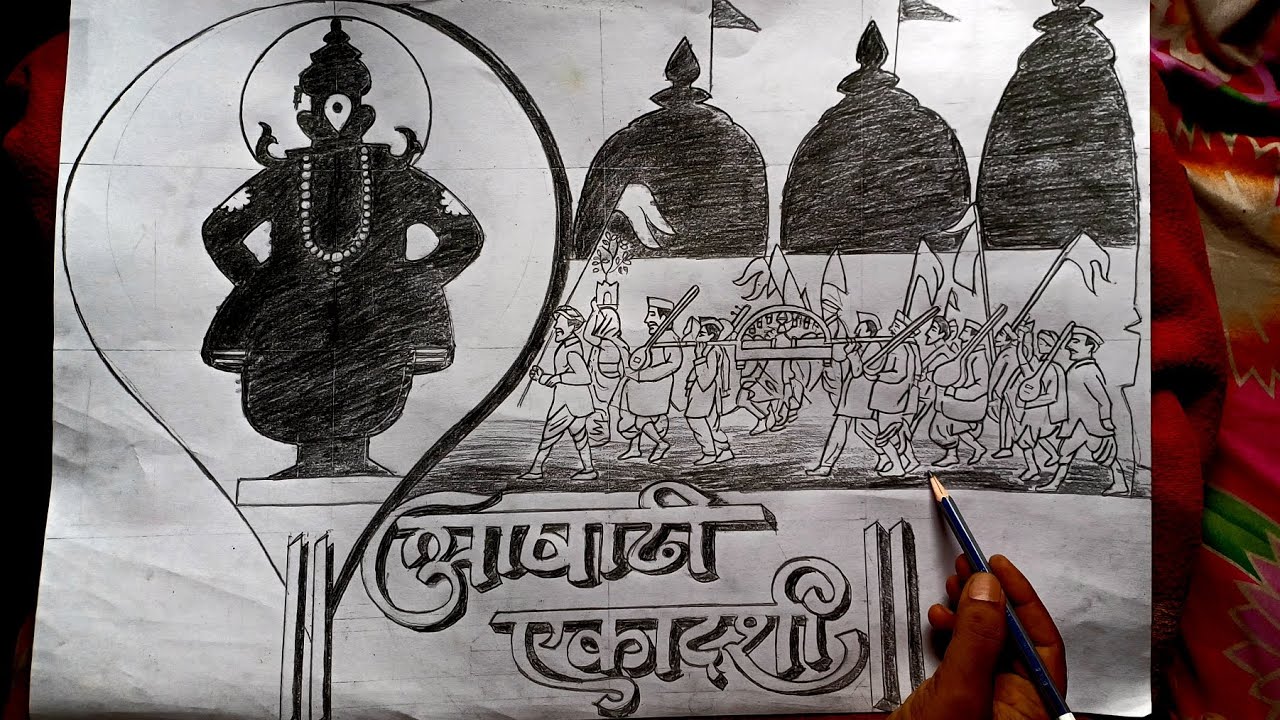 आषाढी
एकादशी